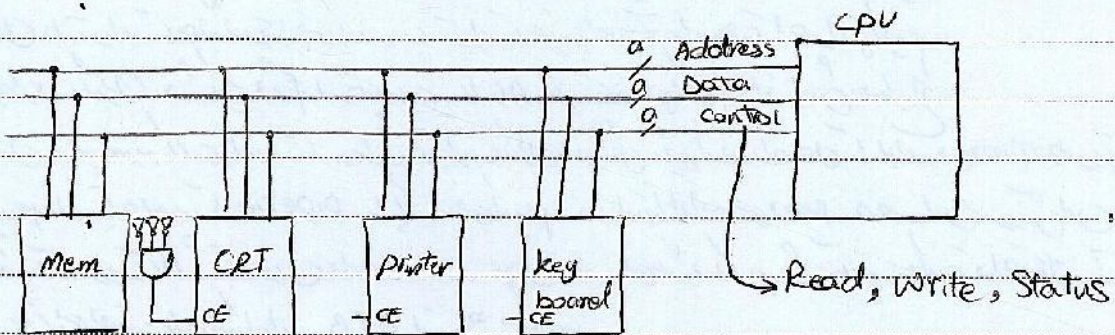 CPU
a Address
a Data
a Control
Mem
CRT
printer
key
board
CE
CE
CE
Read, Write, Status